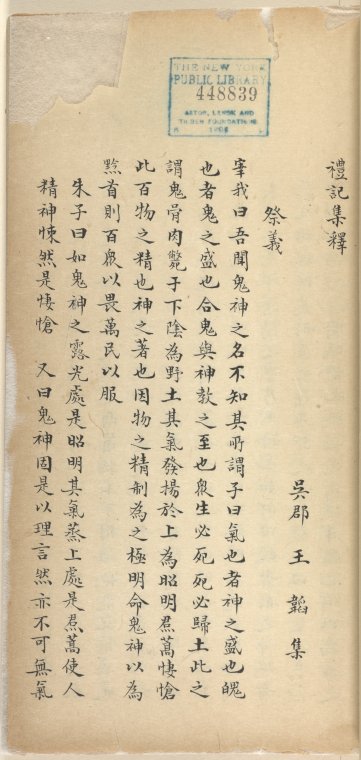 THE NEW YORK
PUBLIC LIBRARY
448839
ASTOR, LENOX AND
TILDEN FOUNDATIONS
R 1908
禮記集釋
吳郡 王 韜 集
祭義
宰我曰吾聞鬼神之名不知其所謂子曰氣也者神之盛也魄
也者鬼之盛也合鬼與神教之至也眾生必死死必歸土此之
謂鬼骨肉斃于下陰為野土其氣發揚於上為昭明焄蒿悽愴
此百物之精也神之著也因物之精制為之極明命鬼神以為
黔首則百眾以畏萬民以服
朱子曰如鬼神之露光處是昭明其氣蒸上處是焄蒿使人
精神悚然是悽愴 又曰鬼神固是以理言然亦不可無氣